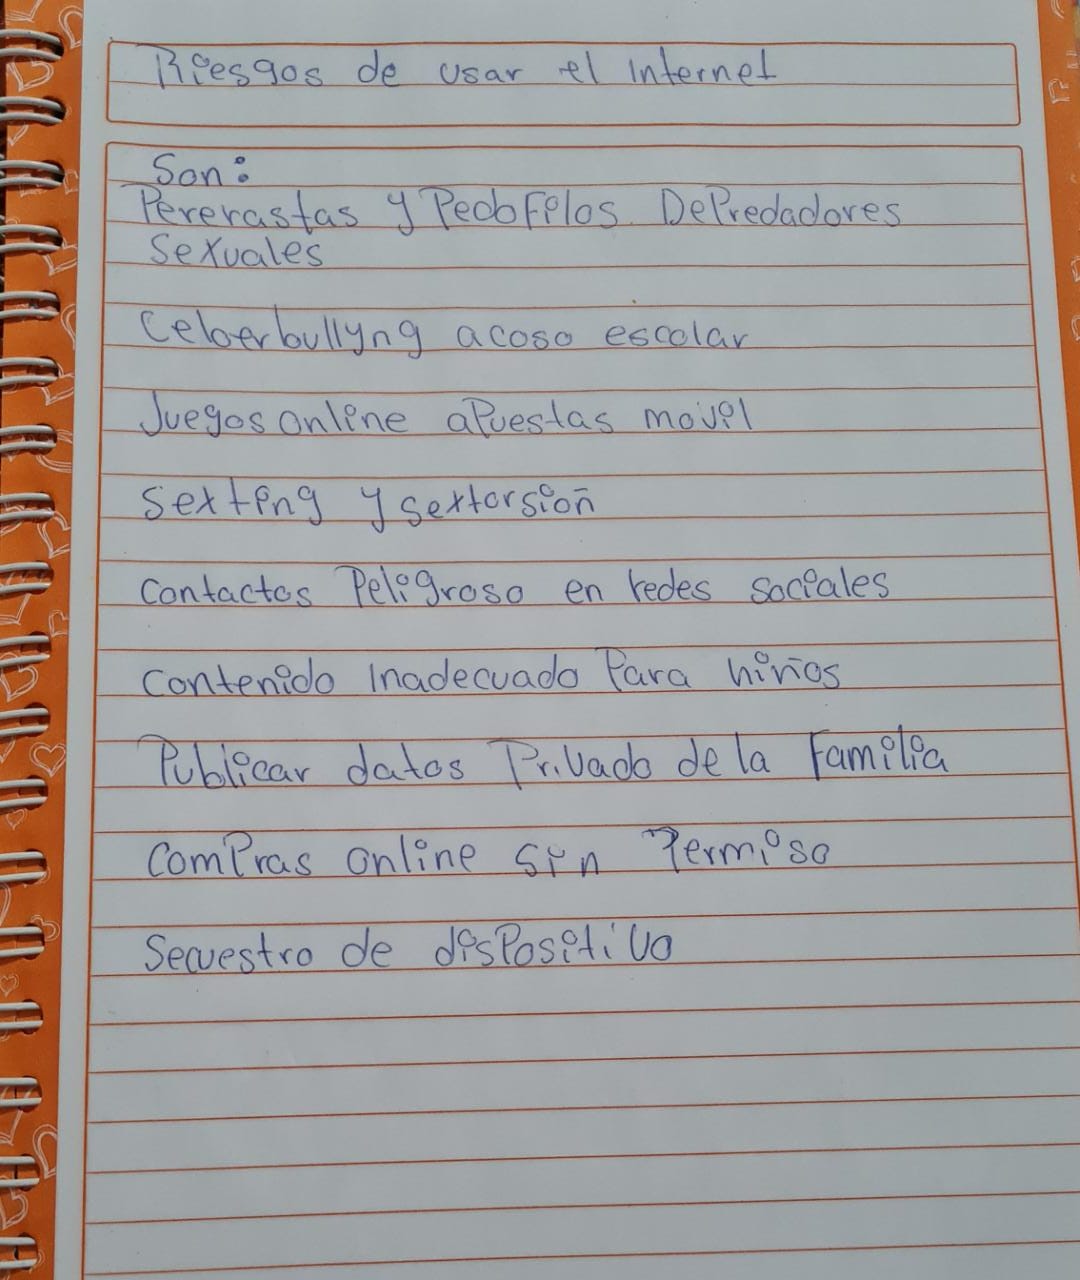 Riesgos de usar el Internet
Son:
Pererastas y Pedofilos Depredadores
Sexuales
Ceberbullyng acoso escolar
Juegos online apuestas movil
Sexting y sextorsion
Contactos Peligroso en redes sociales
Contenido Inadecuado Para niños
Publicar datos Privado de la Familia
Compras online sin Permiso
Secuestro de disPositivo